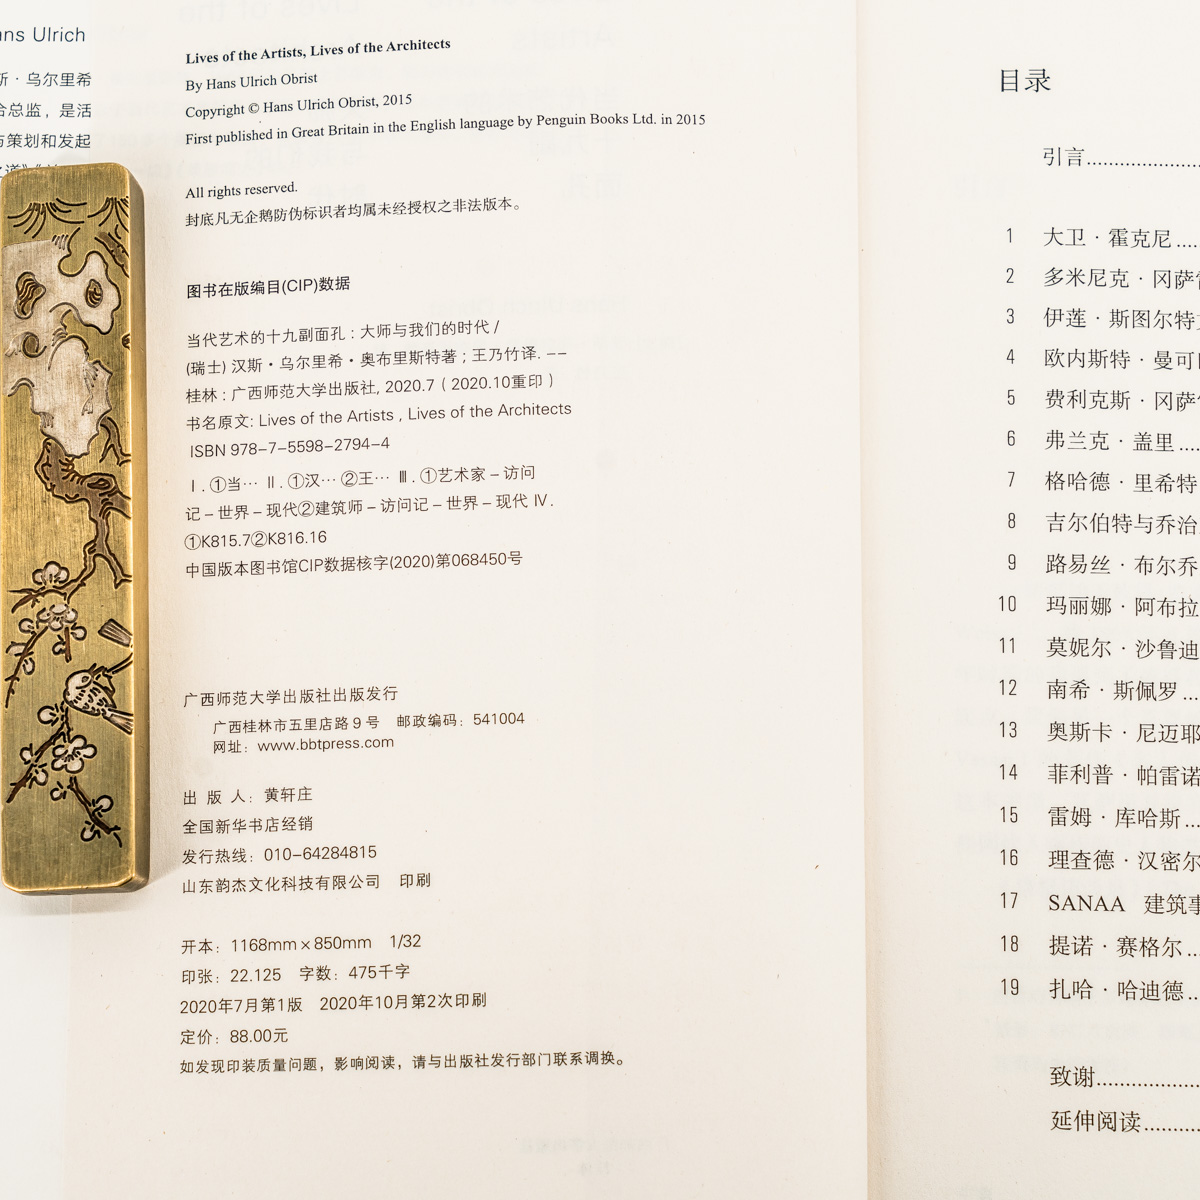 ans Ulrich
斯·乌尔里希
合总监，是活
与策划和发起
Lives of the Artists, Lives of the Architects
By Hans Ulrich Obrist
Copyright © Hans Ulrich Obrist, 2015
First published in Great Britain in the English language by Penguin Books Ltd. in 2015
All rights reserved.
封底凡无企鹅防伪标识者均属未经授权之非法版本。
图书在版编目(CIP)数据
当代艺术的十九副面孔：大师与我们的时代 /
(瑞士) 汉斯·乌尔里希·奥布里斯特著；王乃竹译. --
桂林：广西师范大学出版社, 2020.7（2020.10重印）
书名原文: Lives of the Artists , Lives of the Architects
ISBN 978-7-5598-2794-4
Ⅰ.①当… Ⅱ.①汉… ②王… Ⅲ.①艺术家–访问
记–世界–现代②建筑师–访问记–世界–现代 Ⅳ.
①K815.7②K816.16
中国版本图书馆CIP数据核字(2020)第068450号
广西师范大学出版社出版发行
广西桂林市五里店路9号 邮政编码：541004
网址：www.bbtpress.com
出 版 人：黄轩庄
全国新华书店经销
发行热线：010-64284815
山东韵杰文化科技有限公司 印刷
开本：1168mm×850mm 1/32
印张：22.125 字数：475千字
2020年7月第1版 2020年10月第2次印刷
定价：88.00元
如发现印装质量问题，影响阅读，请与出版社发行部门联系调换。
目录
引言............
1 大卫·霍克尼....
2 多米尼克·冈萨雷
3 伊莲·斯图尔特
4 欧内斯特·曼可
5 费利克斯·冈萨
6 弗兰克·盖里....
7 格哈德·里希特
8 吉尔伯特与乔治
9 路易丝·布尔乔
10 玛丽娜·阿布拉
11 莫妮尔·沙鲁迪
12 南希·斯佩罗...
13 奥斯卡·尼迈耶
14 菲利普·帕雷诺
15 雷姆·库哈斯...
16 理查德·汉密尔
17 SANAA 建筑事
18 提诺·赛格尔...
19 扎哈·哈迪德...
致谢............
延伸阅读.........